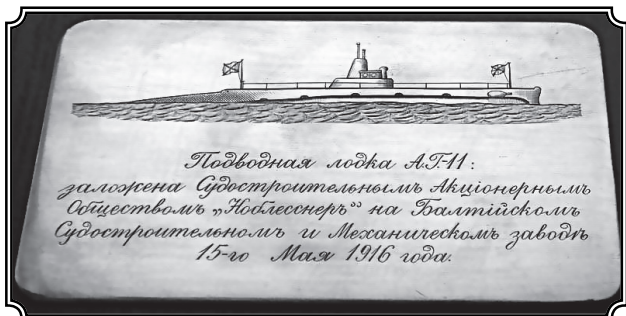 Подводная лодка АГ-11:
заложена Судостроительнымъ Акціонернымъ
Обществомъ „Ноблесснеръ“ на Балтійскомъ
Судостроительномъ и Механическомъ заводѣ
15-го Мая 1916 года.